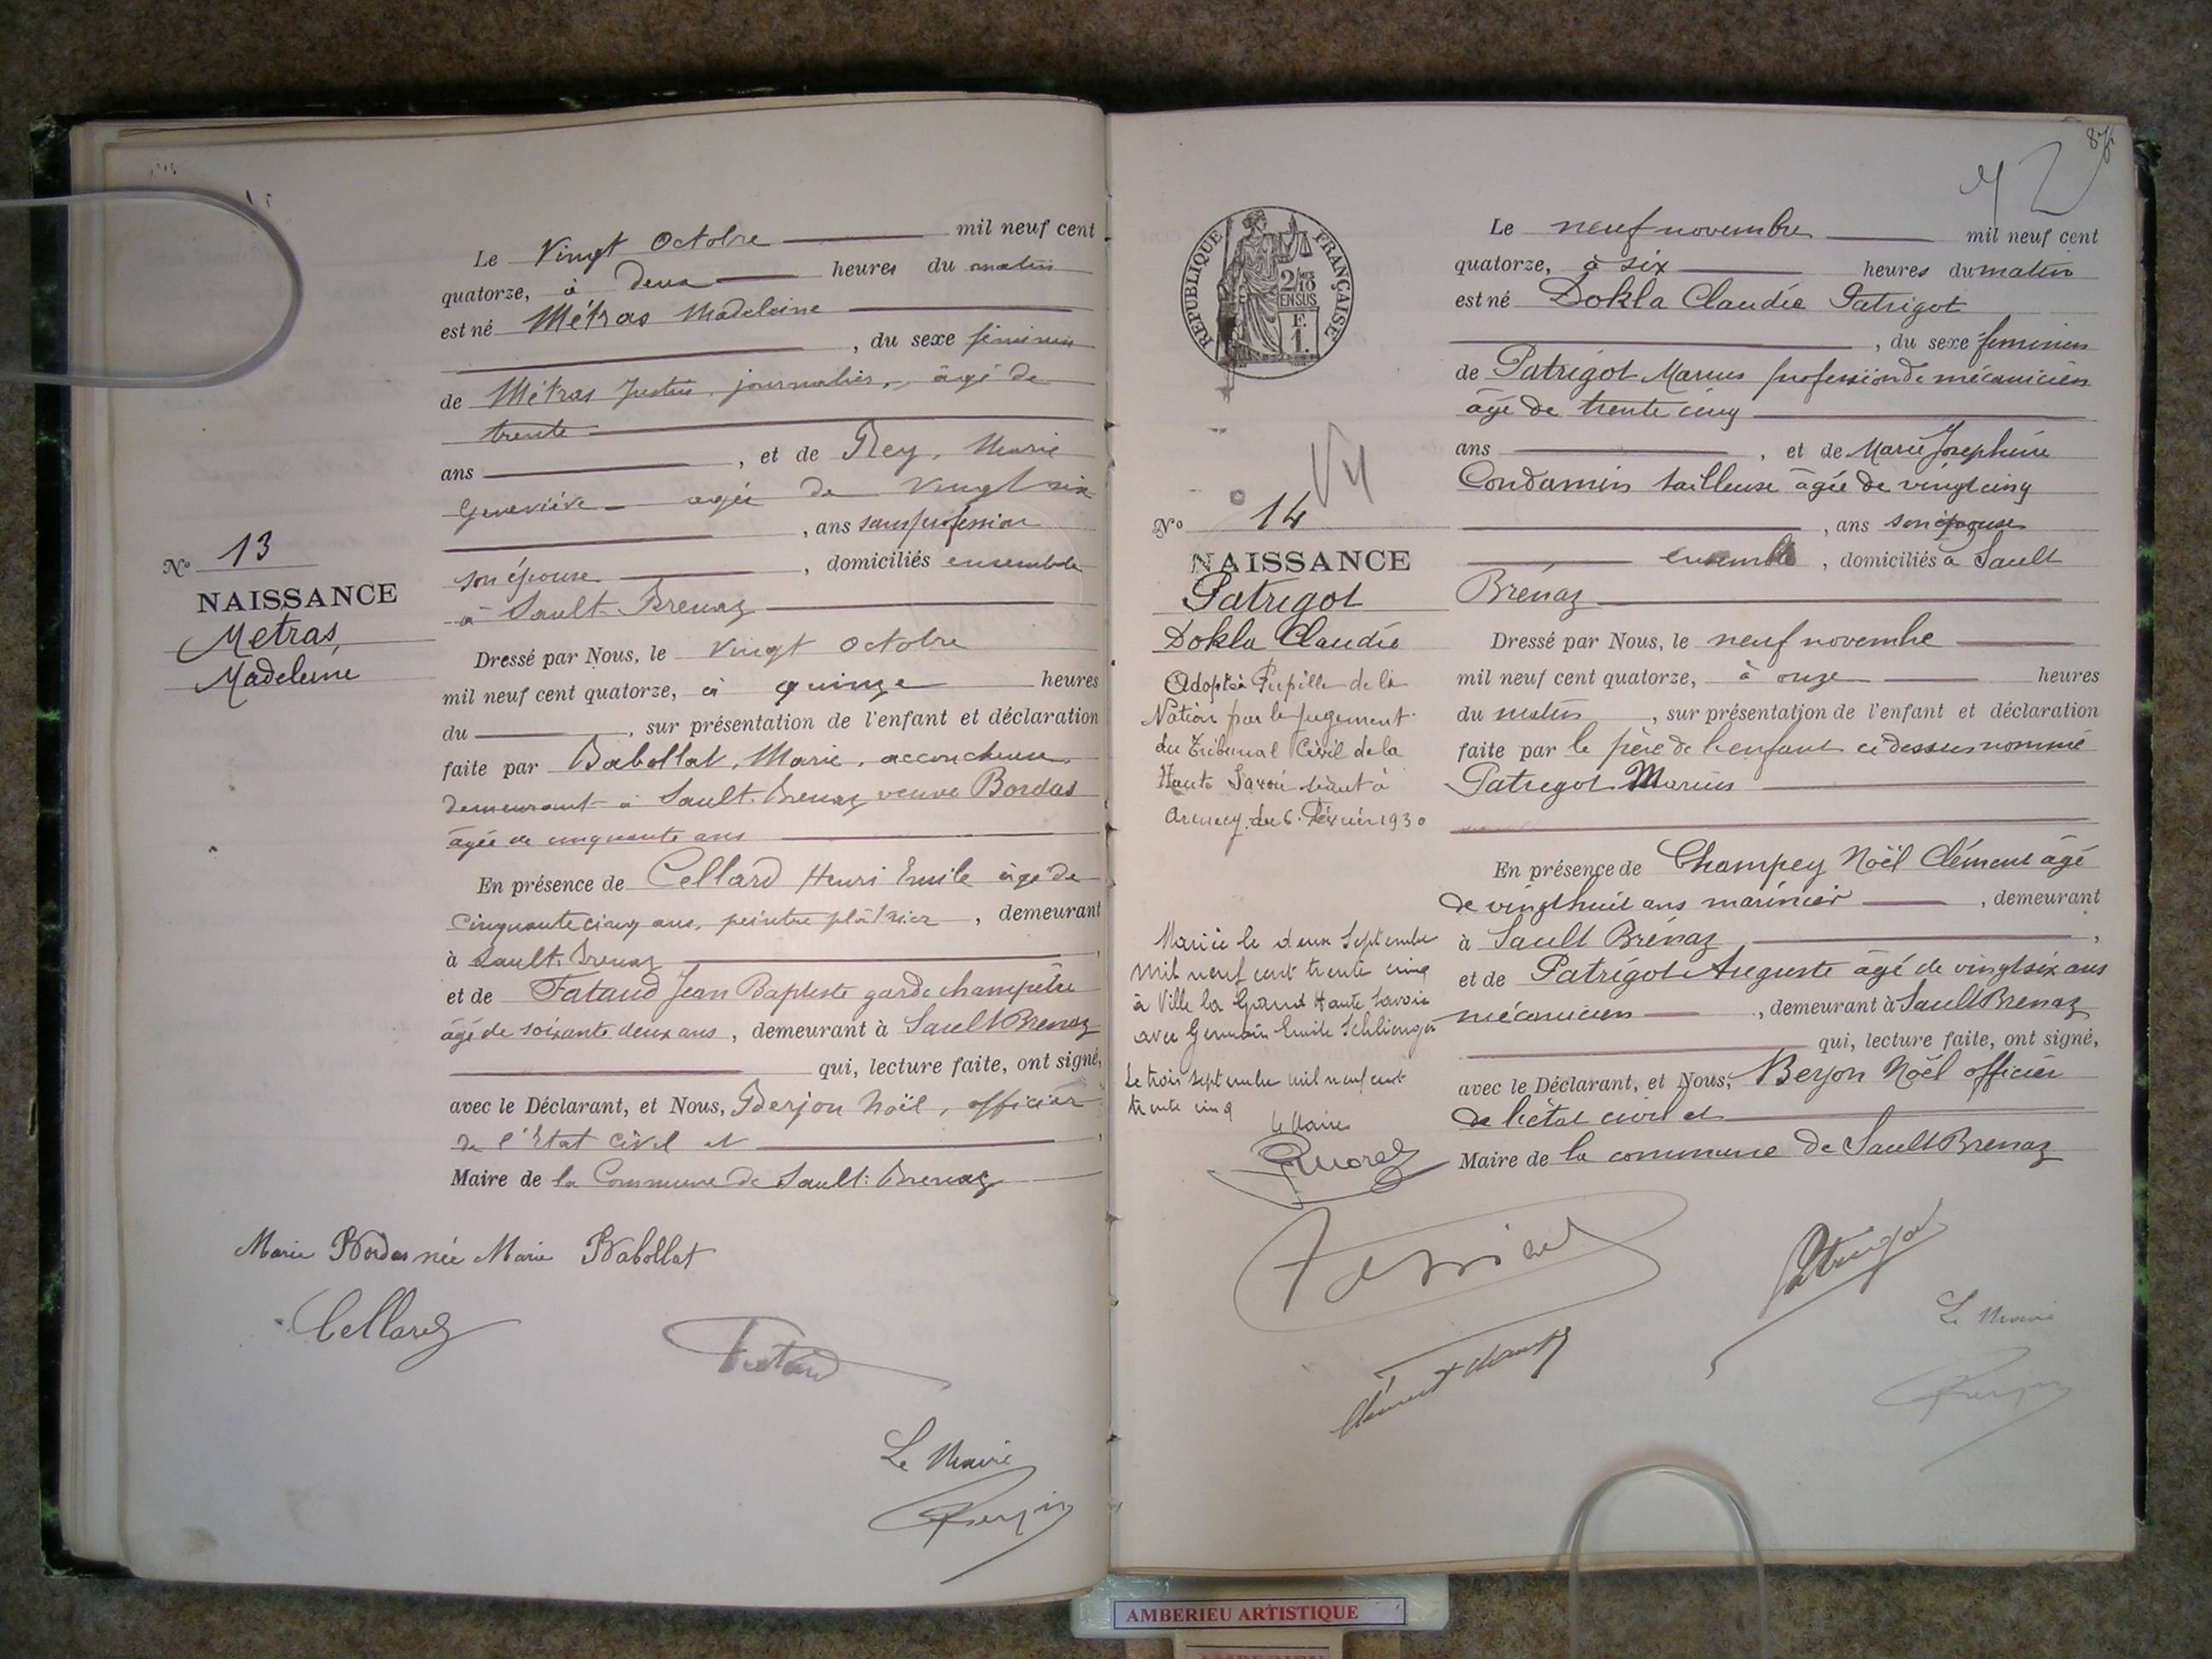 Le Vingt Octobre mil neuf cent
quatorze, à deux heures du matin
est né Métras Madeleine
, du sexe féminin
de Métras Justin, journalier, âgé de
trente
ans , et de Rey, Marie
Geneviève agée de vingt six
, ans sans profession
son épouse , domiciliés ensemble
à Sault-Brenaz
Dressé par Nous, le vingt octobre
mil neuf cent quatorze, à quinze heures
du , sur présentation de l'enfant et déclaration
faite par Babollat, Marie, accoucheuse,
demeurant à Sault-Brenaz veuve Bordas
âgée de cinquante ans
En présence de Cellard Henri Emile âgé de
cinquante cinq ans, peintre plâtrier , demeurant
à Sault-Brenaz ,
et de Fataud Jean Baptiste garde champêtre
âgé de soixante deux ans , demeurant à Sault Brenaz
qui, lecture faite, ont signé,
avec le Déclarant, et Nous, Berjon Noël, officier
de l'Etat Civil et
Maire de la Commune de Sault-Brenaz
Nº 13
NAISSANCE
Metras,
Madeleine
Marie Bordas née Marie Babollat
Cellard
Fataud
Le Maire
Berjon
87
REPUBLIQUE FRANÇAISE
2/10
EN SUS
F.
1.
Le neuf novembre mil neuf cent
quatorze, à six heures du matin
est né Dokla Claudia Patrigot
, du sexe feminin
de Patrigot Marius profession de mécanicien
âgé de trente cinq
ans , et de Marie Josephine
Condamin tailleuse âgée de vingt cinq
, ans son épouse
ensemble , domiciliés à Sault
Brénaz
Dressé par Nous, le neuf novembre
mil neuf cent quatorze, à onze heures
du matin , sur présentation de l'enfant et déclaration
faite par le père de l'enfant ci dessus nommé
Patrigot Marius
En présence de Champey Noël Clément âgé
de vingt huit ans marinier , demeurant
à Sault Brénaz ,
et de Patrigot Auguste âgé de vingt six ans
mécanicien , demeurant à Sault Brenaz
qui, lecture faite, ont signé,
avec le Déclarant, et Nous, Berjon Noël officier
de l'état civil et
Maire de la commune de Sault Brenaz
Nº 14
NAISSANCE
Patrigot
Dokla Claudia
Adoptée Pupille de la
Nation par le jugement
du Tribunal Civil de la
Haute Savoie séant à
Annecy, du 6. Février 1930
Mariée le deux Septembre
mil neuf cent trente cinq
à Ville la Grand Haute Savoie
avec Germain Emile Schlienger
Le trois septembre mil neuf cent
trente cinq
Le Maire
Patrigot
Le Maire
Berjon
AMBERIEU ARTISTIQUE
AMBERIEU